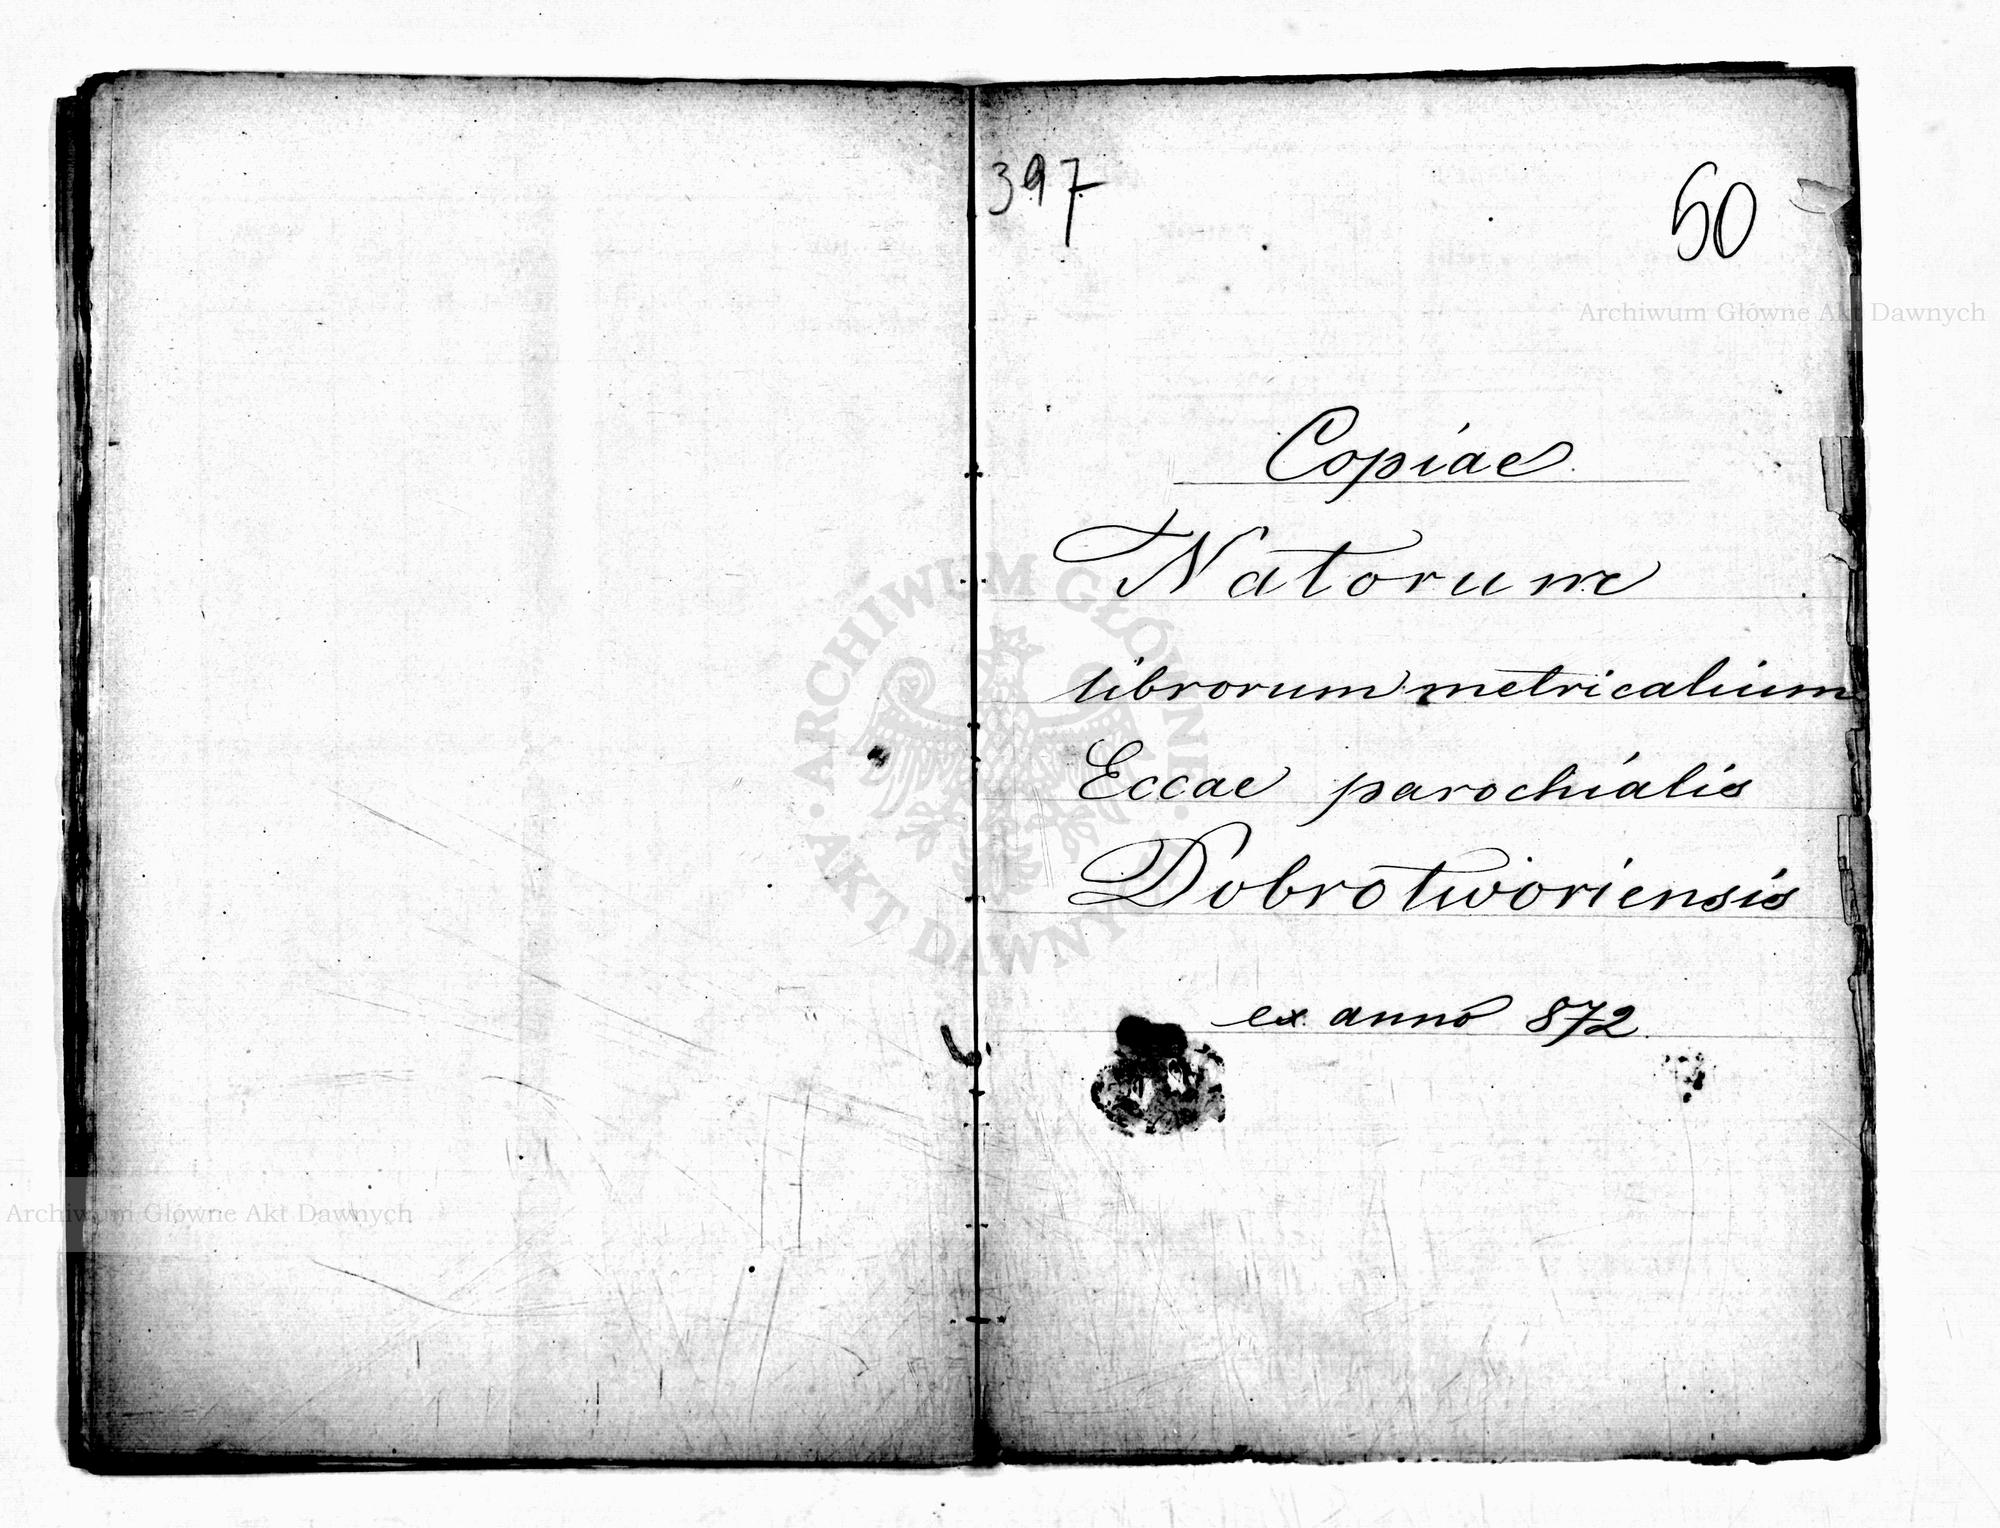 397
50
Archiwum Główne Akt Dawnych
Copiae
Natorum
librorum metricalium
Eccae parochialis
Dobrotworiensis
ex anno 872
ARCHIWUM GŁÓWNE
AKT DAWNYCH
Archiwum Główne Akt Dawnych